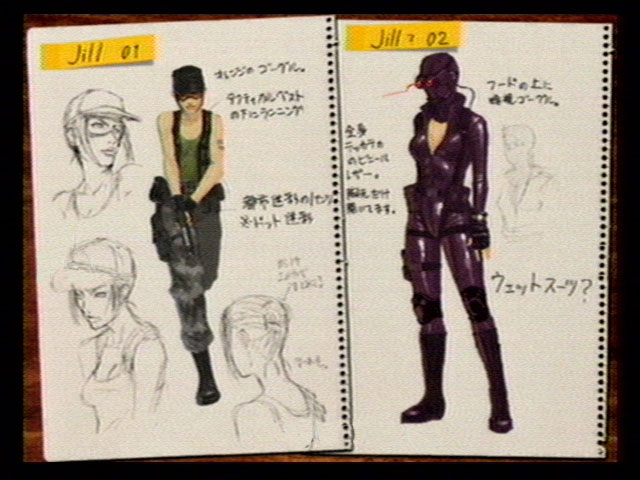 Jill 01
オレンジのゴーグル。
タクティカルベスト
の下にランニング
都市迷彩のパンツ
ドット迷彩
Jill? 02
フードの上に
暗視ゴーグル。
全身
テッカテカ
のビニール
レザー。
胸元だけ
開いてます。
ウェットスーツ?